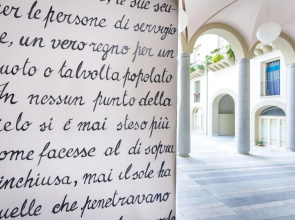 er le persone di servizio
e, un vero regno per un
uoto o talvolta popolato
In nessun punto della
ielo si è mai steso più
ome facesse al di sopra
inchiusa, mai il sole ha
uelle che penetravano